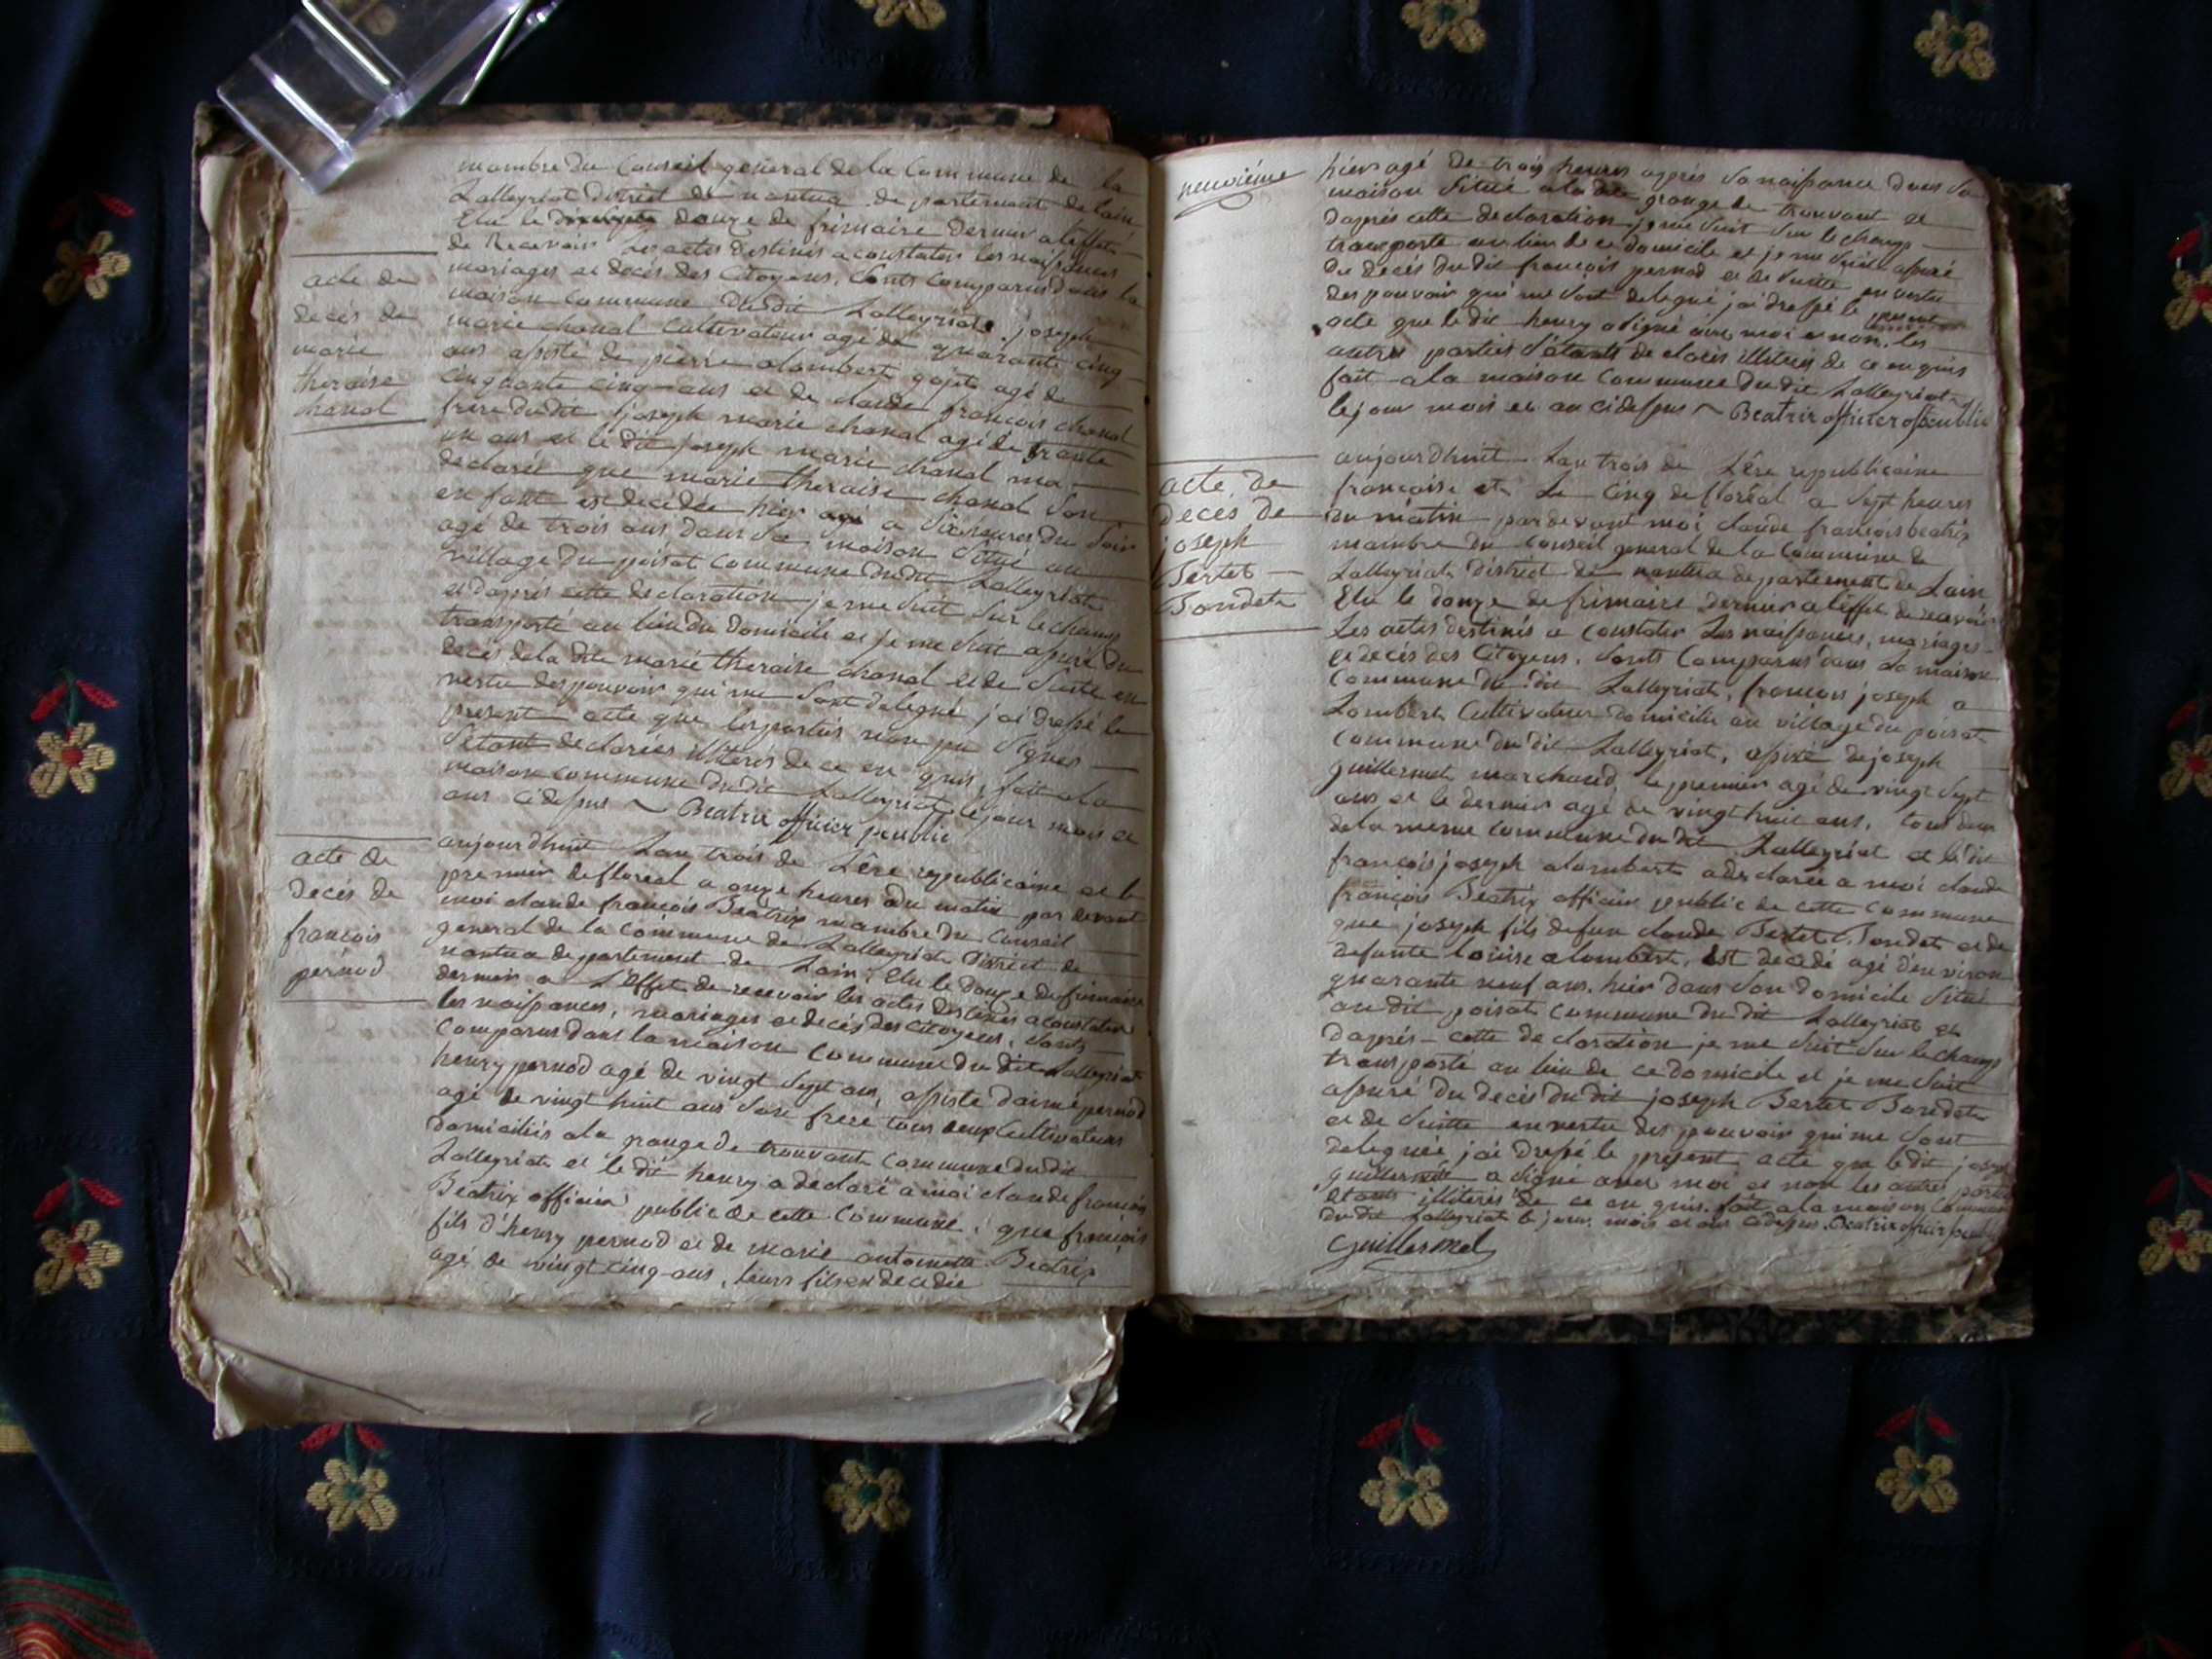 mambre du Conseil general de la Commune de la
Lalleyriat district de nantua de partement de lain
Elu le douze de frimaire dernier a leffete
de Recevoir les actes destinés a constater les naissances
mariages et decès des Citoyens, sonts comparus dans la
maison commune dudit Lalleyriat, joseph
marie chanal cultivateur agé de quarante cinq
ans assisté de pierre alombert gojete agé de
cinquante cinq ans et de claude françois chanal
frere dudit joseph marie chanal agé de trante
un ans et le dit joseph marie chanal ma
declaré que marie theraise chanal son
enfant est decedée hier a six heures du soir
agé de trois ans dans sa maison situé au
village du poisat commune dudit Lalleyriat
et daprès cette declaration je me suit sur le champ
transporté au lieu du domicile et je me suit assuré du
decès de la dite marie theraise chanal et de suite en
vertu des pouvoir qui me sont delegué j'ai dressé le
present acte que les parties non pu signer
s'étant declarées illiteris de ce en quis, fait a la
maison commune dudit Lalleyriat le jour mois et
ans cidessus ~ Beatrix officier peublic
acte de
decès de
marie
theraise
chanal
aujourdhuit Lan trois de Lêre republicaine et le
premier de floreal a onze heures du matin par devant
moi claude françois Beatrix mambre du Conseil
general de la Commune de Lalleyriat District de
nantua departement de Lain, Elu le douze de frimaire
dernier a L'effet de recevoir les actes destinés a constater
les naissances, mariages et decès des citoyens, sonts
comparus dans la maison commune du dit Lalleyriat
henry pernod agé de vingt sept ans, assisté daimé pernod
agé de vingt huit ans son frere tous deux Cultivateurs
domiciliés a la grange de trouvant commune du dit
Lalleyriat et le dit henry a declaré a moi claude françois
Beatrix officier public de cette Commune, que françois
fils d'henry pernod et de marie antoinette Beatrix
agé de vingt cinq ans, leurs fils est decedé
acte de
decès de
françois
pernod
neuvième
hier agé de trois heures après sa naissance dans sa
maison situé a la dite grange de trouvant et
daprès cette declaration je me suit sur le champ
transporté au lieu de ce domicile et je me suit assuré
du decès du dit françois pernod et de suite en vertu
des pouvoir qui me sont delegué j'ai dressé le
acte que le dit henry a signé avec moi et non les
autres parties s'étants declarés illiteris de ce enquis
fait a la maison Commune du dit Lalleyriat
le jour mois et an cidessus ~ Beatrix officier peublic
aujourdhuit Lan trois de Lêre republicaine
françoise et le cinq de floréal a sept heures
du matin pardevant moi claude françois beatrix
mambre du conseil general de la commune de
Lalleyriat District de nantua departement de Lain
Elu le douze de frimaire dernier a leffet de recevoir
les actes destinés a constater les naissances, mariages
et decès des Citoyens, sonts Comparus dans la maison
Commune du dit Lalleyriat, françois joseph a
Lombert Cultivateur domicilié au village du poisat
Commune du dit Lalleyriat, assisté de joseph
guillermet marchand, le premier agé de vingt sept
ans et le dernier agé de vingt huit ans, tous deux
de la meme commune du dit Lalleyriat et le dit
françois joseph alombert a declaré a moi claude
françois Beatrix officier public de cette commune
que joseph fils de feu claude Bertet Bondet et de
defunte louise alombert, Est decedé agé d'environ
quarante neuf ans, hier dans son domicile situé
au dit poisat commune du dit Lalleyriat et
daprès cette declaration je me suit sur le champ
transporté au lieu de ce domicile et je me suit
assuré du decès du dit joseph Bertet Bondet
et de suitte en vertu des pouvoir qui me sont
delegués j'ai dressé le present acte que le dit joseph
guillermet a signé avec moi et non les autres parties
étants illiteris de ce en quis. fait a la maison commune
du dit Lalleyriat le jour mois et ans cidessus. Beatrix officier peublic
Guillermet
acte de
decès de
joseph
Bertet
Bondet